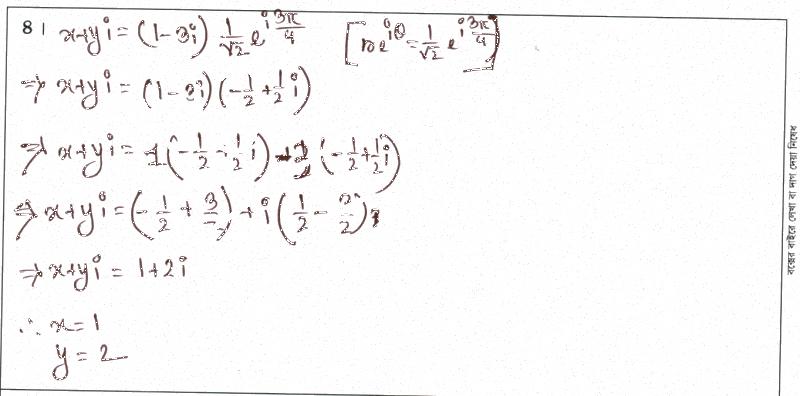 8| x+yi = (1-3i) 1/√2 e^{i 3π/4} [re^{iθ} = 1/√2 e^{i 3π/4}]
⇒ x+yi = (1-3i)(-1/2+1/2 i)
⇒ x+yi = (-1/2 - 1/2 i) (-1/2+1/2 i)
⇒ x+yi = (-1/2 + 3/2) + i(1/2 - 2/2)
⇒ x+yi = 1+2i
∴ x=1
y = 2
বক্সের বাইরে লেখা বা দাগ দেয়া নিষেধ